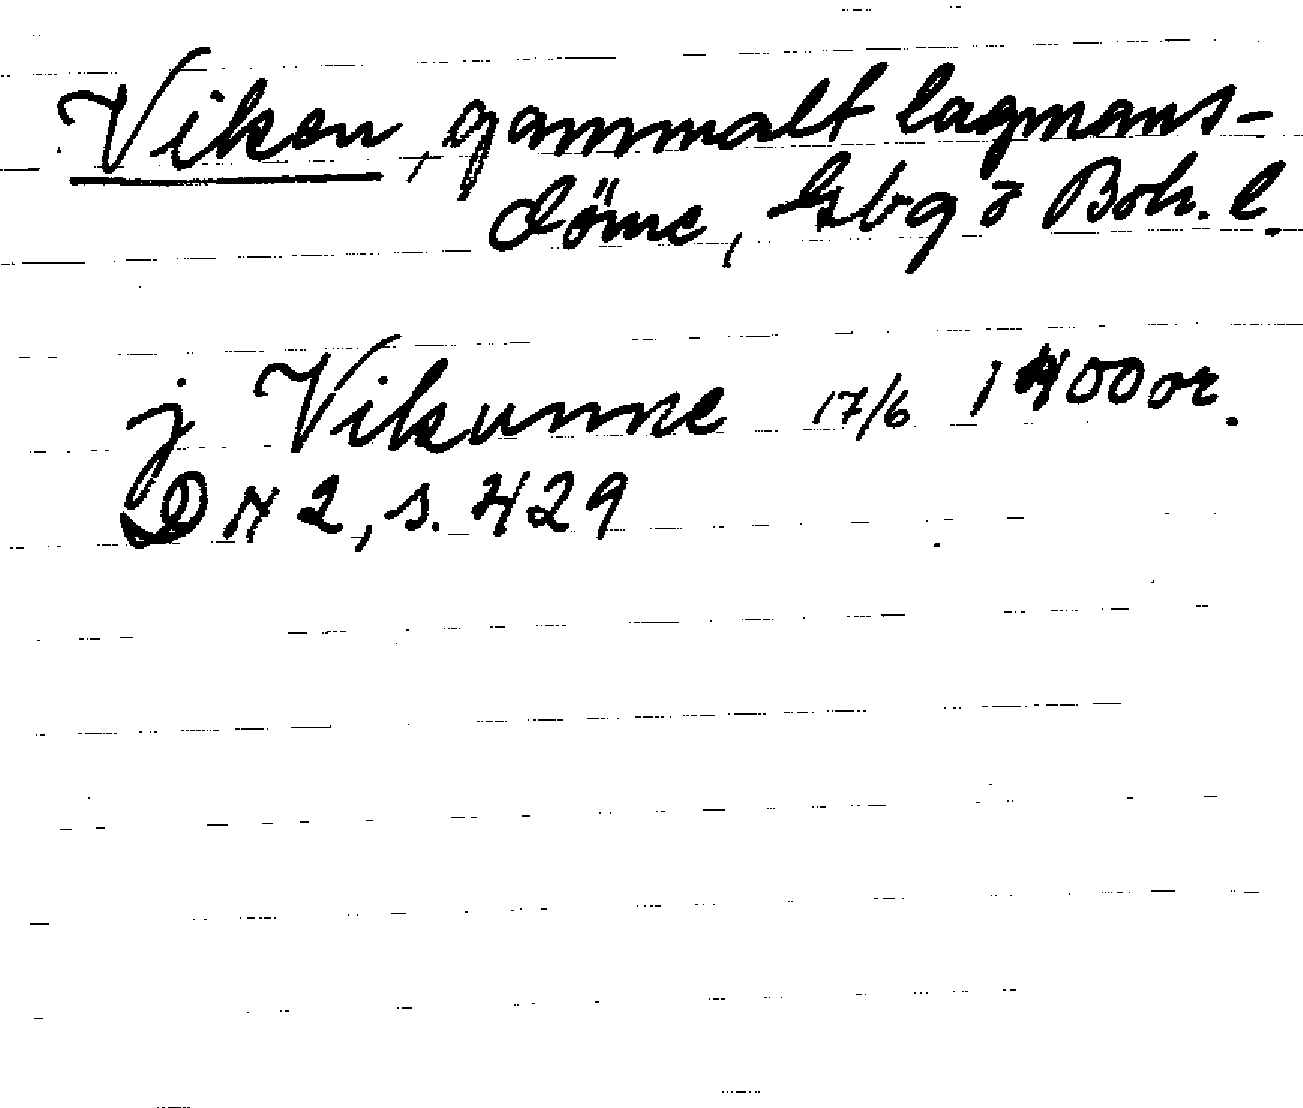 Viken, gammalt lagmans-
döme, Gbg o Boh. l.
j Vikunne 17/6 1400 or.
DN 2, s. 429